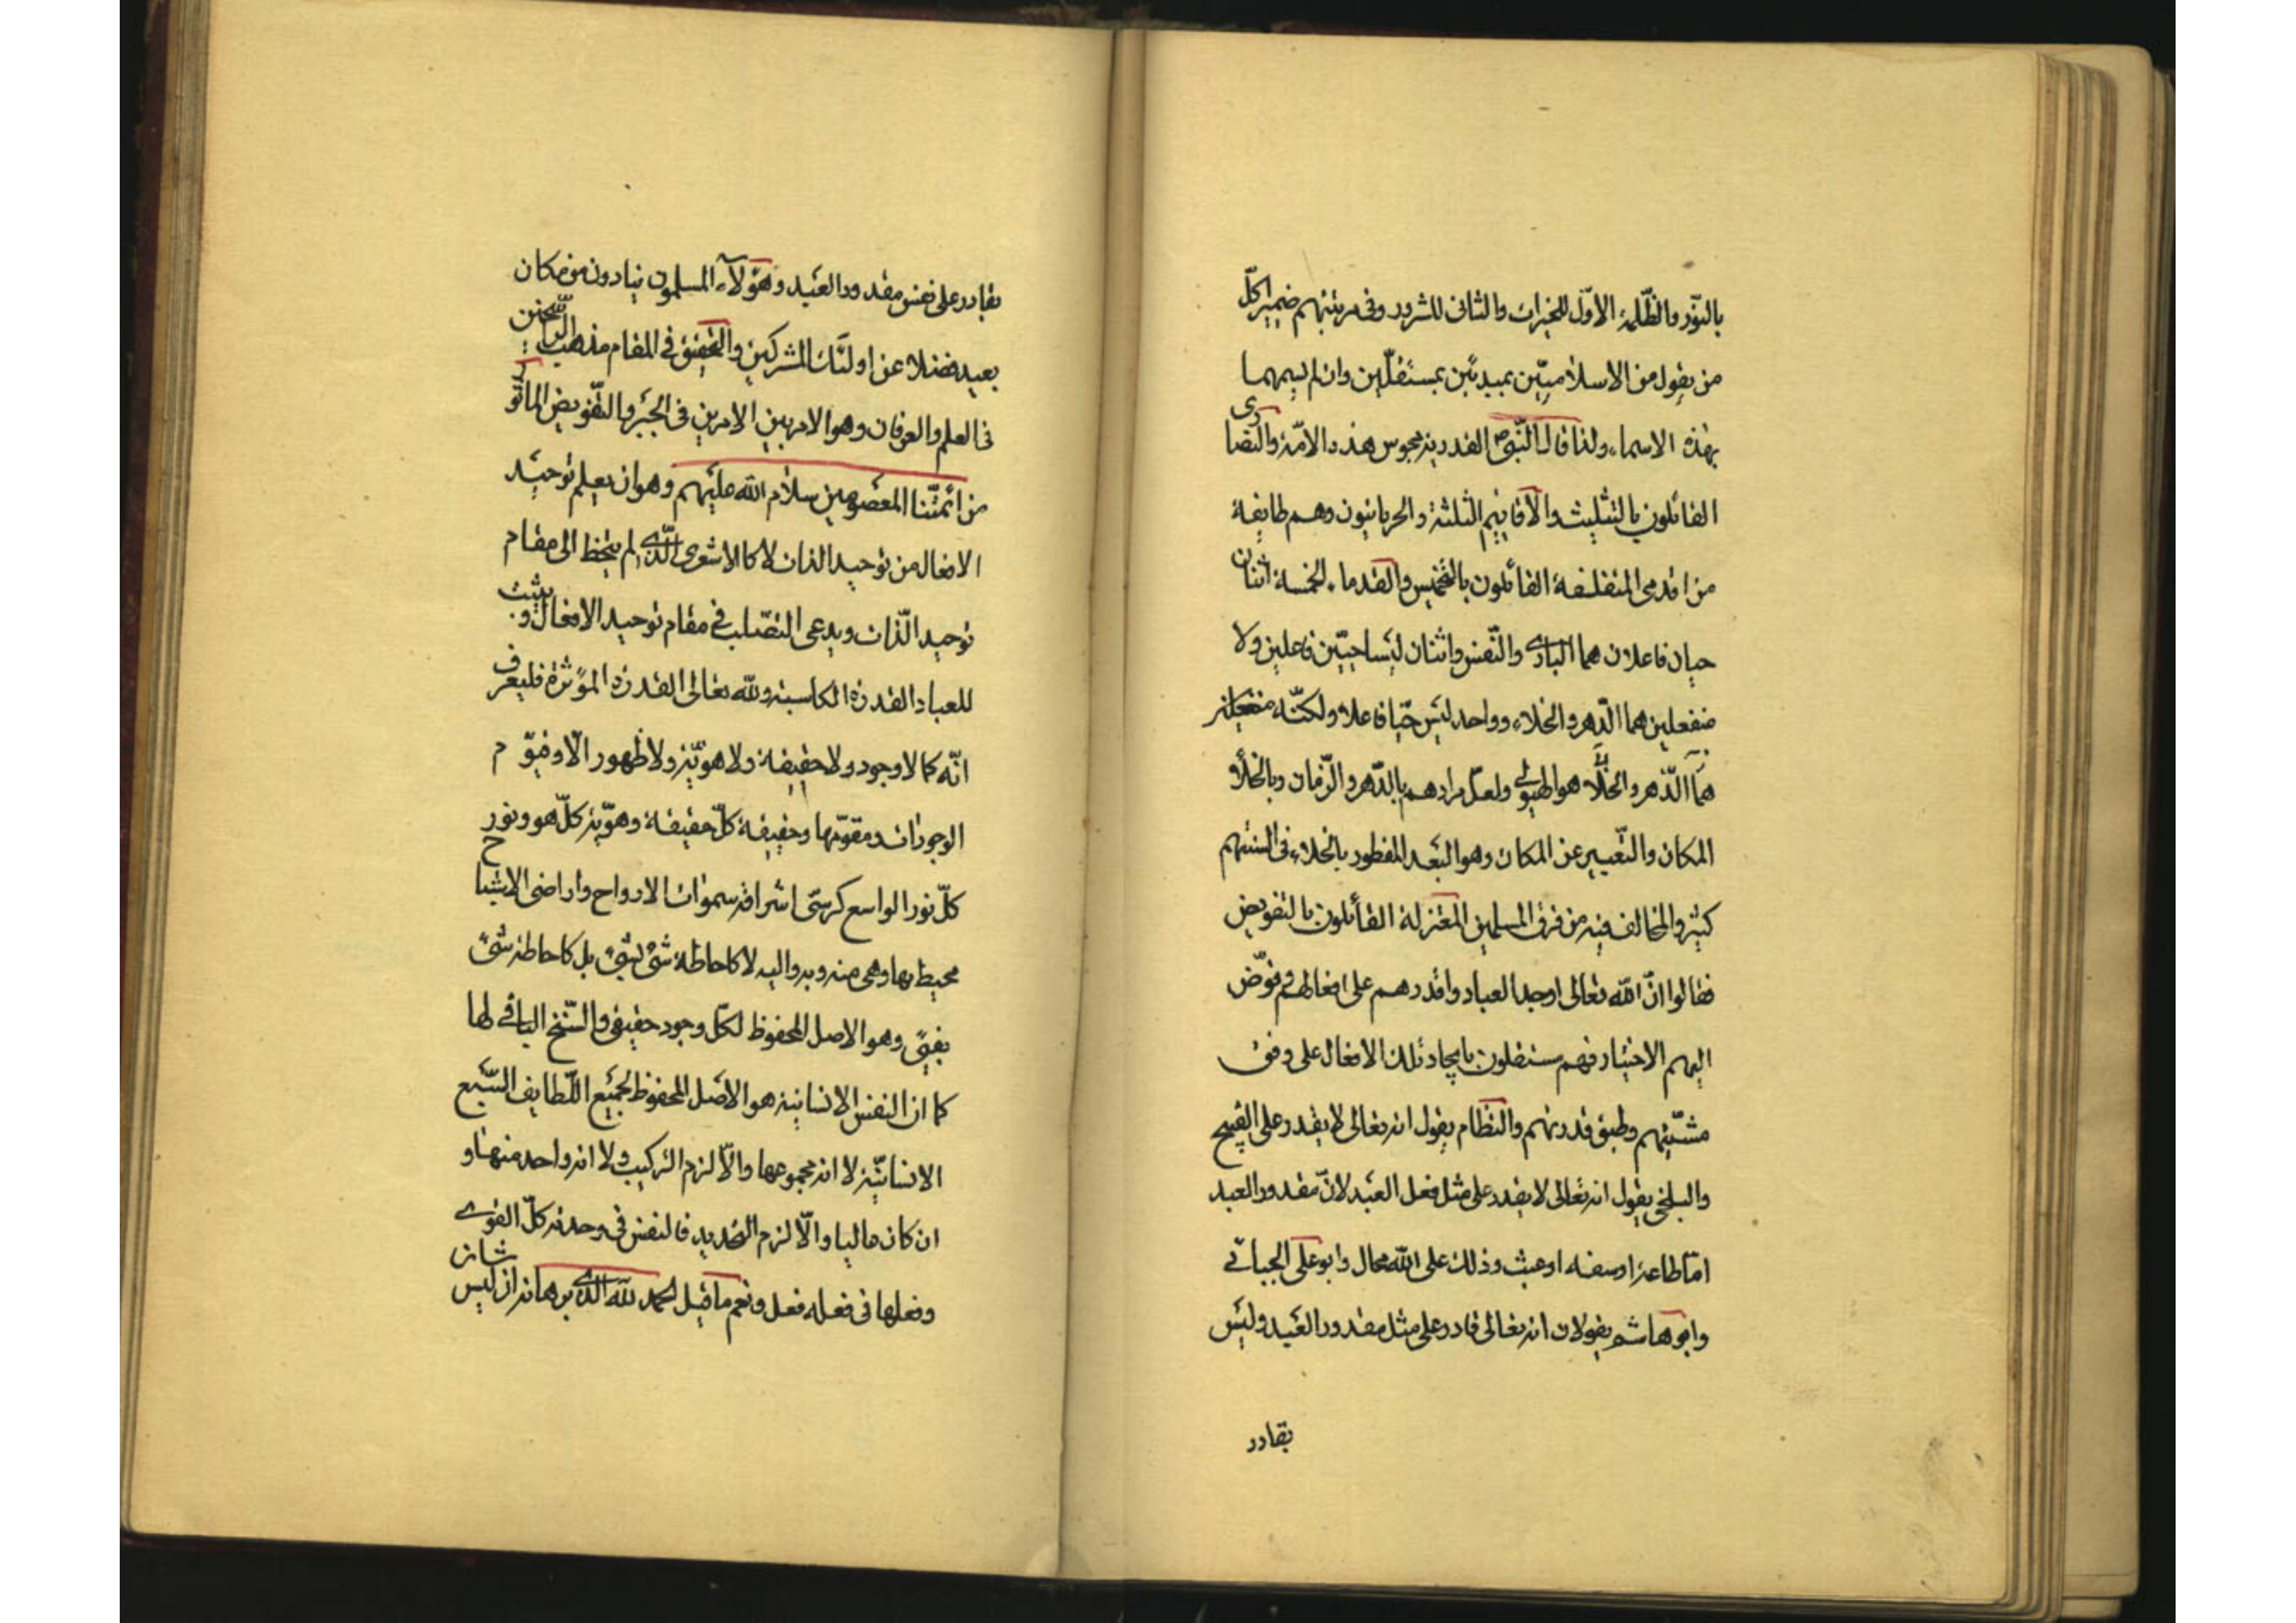 بالنّور والظّلمة الاوّل للخيرات والثانى للشرور وفى مرتبتهم ضمير كلّ
من يقول من الاسلاميّين بمبدئين بمستقلّين وان لم يسمهما
بهذه الاسماء ولذا قال النّبىّ ص القدرية مجوس هذه الامّة والنصارى
القائلون بالتثليث والاقانيم الثلثة والحربانيون وهم طايفة
من اقدمى المتفلسفة القائلون بالتخميس والقدماء الخمسة اثنان
حيان فاعلان هما البارى والنّفس واثنان ليسا حيّين فاعلين ولا
منفعلين هما الدّهر والخلاء وواحد ليس حيّا فاعلا ولكنّه منفعل
هما الدّهر والخلاء هو الهيولى ولعلّ مرادهم بالدّهر والزّمان وبالخلاء
المكان والتعبير عن المكان وهو البعد المفطور بالخلاء فى السنتهم
كثير والمخالف فيه من فرق المسلمين المعتزلة القائلون بالتفويض
فقالوا انّ الله تعالى اوجد العباد واقدرهم على افعالهم وفوّض
اليهم الاختيار فهم مستقلون بايجاد تلك الافعال على وفق
مشيّتهم وطبق قدرتهم والنظام يقول انه تعالى لا يقدر على القبيح
والبلخى يقول انه تعالى لا يقدر على مثل فعل العبد لانّ مقدور العبد
امّا طاعة او سفه او عبث وذلك على الله محال وابو على الجبائى
وابو هاشم يقولان انه تعالى قادر على مثل مقدور العبد وليس
بقادر
بقادر على نفس مقدور العبد وهؤلاء المسلمون ينادون من مكان
بعيد فضلا عن اولئك المشركين والتحقيق فى المقام مذهب الراسخين
فى العلم والعرفان وهو الامر بين الامرين فى الجبر والتّفويض الماثور
من ائمّتنا المعصومين سلام الله عليهم وهو ان يعلم توحيد
الافعال من توحيد الذات لا كالاشعرى الّذى لم يتخط الى مقام
توحيد الذّات ويدعى التصّلب فى مقام توحيد الافعال ويثبت
للعباد القدرة الكاسبة ولله تعالى القدرة المؤثرة فليعرف
انّه كما لا وجود ولا حقيقة ولا هويّة ولا ظهور الّا وهو قيّوم
الوجودات ومقوّمها وحقيقة كلّ حقيقة وهويّة كلّ هو ونور
كلّ نور الواسع كرسىّ اشراقه سموات الارواح واراضى الاشباح
محيط بها وهى منه وبه واليه لا كاحاطة شىء بشىء بل كاحاطة شىء
بفىء وهو الاصل المحفوظ لكلّ وجود حقيقى والسّنخ الباقى لها
كما ان النفس الانسانية هو الاصل المحفوظ لجميع اللّطايف السّبع
الانسانيّة لا انه مجموعها والّا لزم التركيب ولا انه واحد منها و
ان كان عاليا والّا لزم التحديد فالنفس فى وحدته كلّ القوى
وفعلها فى فعله فعل ونعم ما قيل الحمد لله الّذى برهانه ان ليس شانه